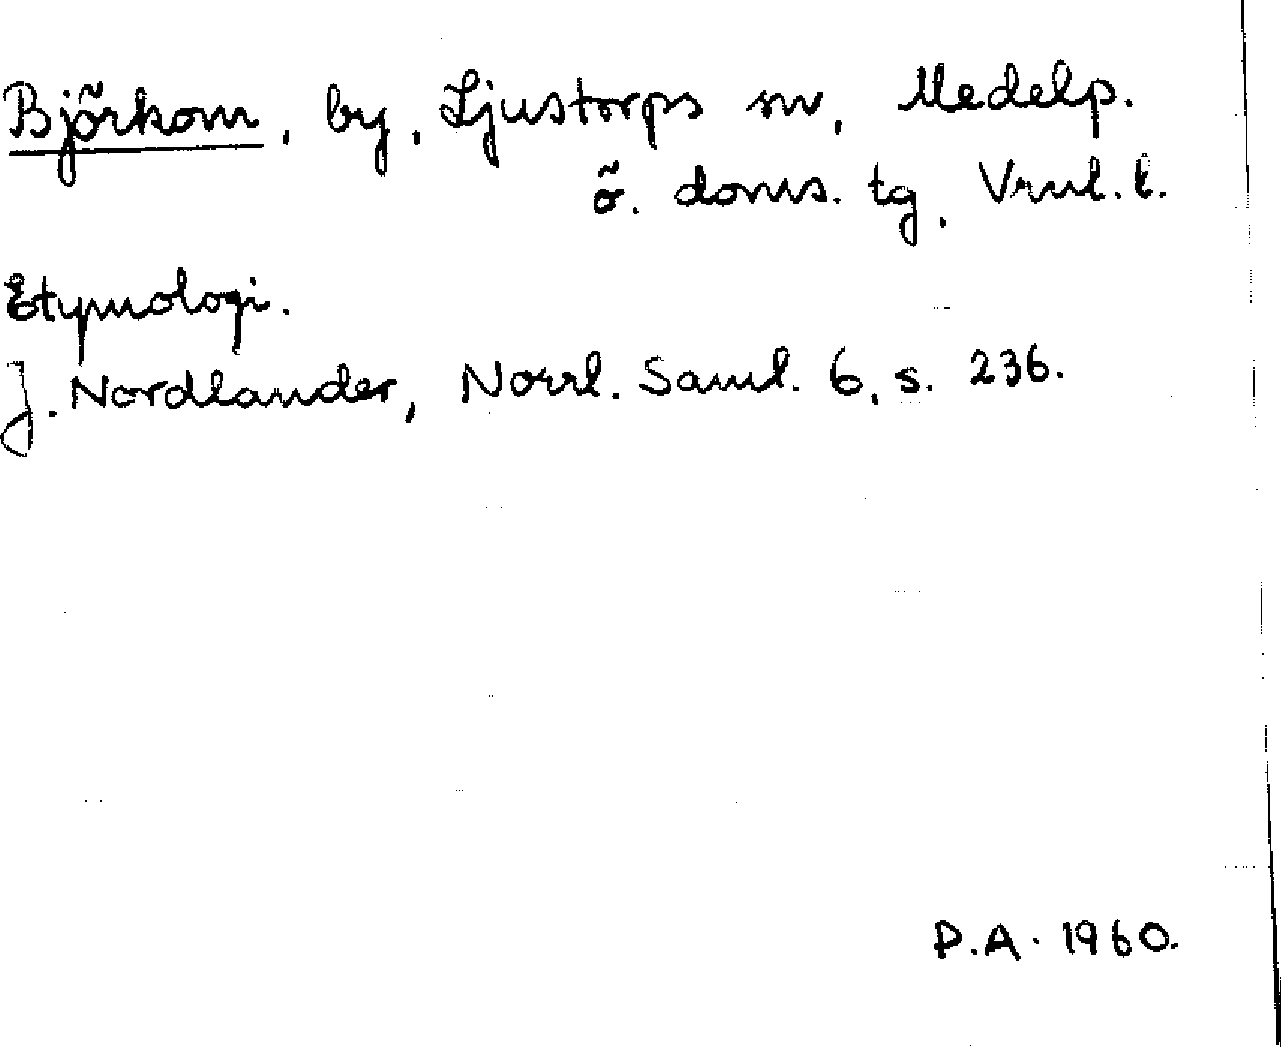 Björkom, by, Ljustorps sn, Medelp.
ö. doms. tg, Vnl. l.
Etymologi.
J. Nordlander, Norrl. Saml. 6, s. 236.
P.A. 1960.